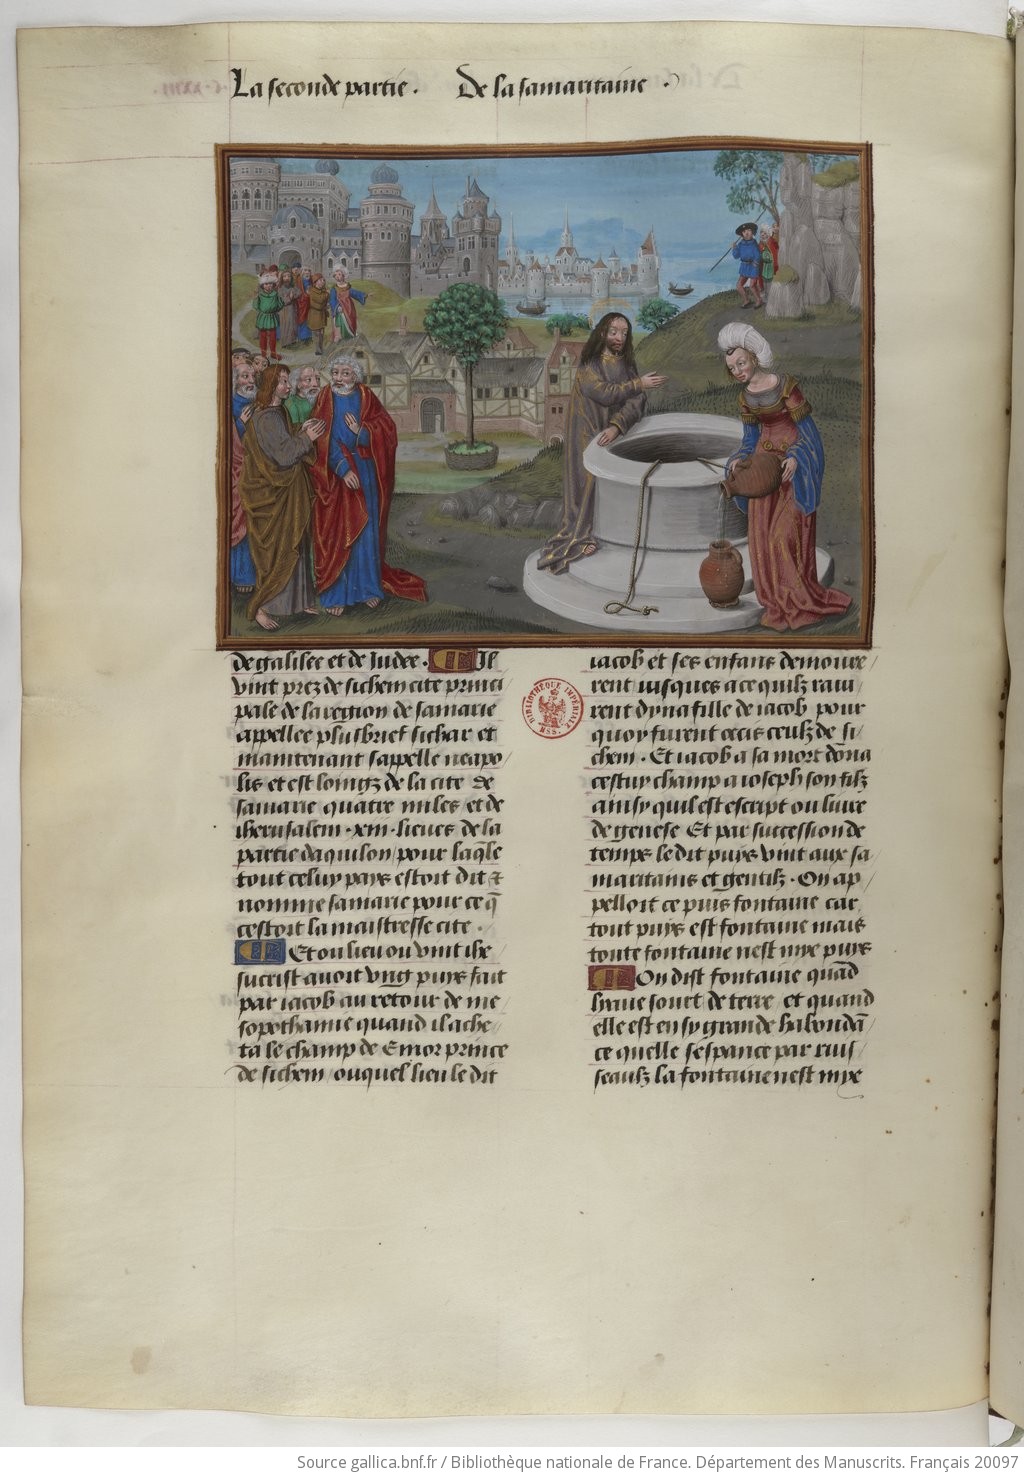 La seconde partie . De la samaritaine .
de galilee et de Judee . Il
vint prez de sichem cite princi
pale de la region de samarie
appellee plusbrief sichar et
maintenant sappelle neapo
lis et est loingz de la cite de
samarie quatre miles et de
iherusalem .xiii. lieues de la
partie daquilon / pour laqle
tout celuy pays estoit dit et
nomme samarie pour ce q̃
cestoit la maistresse cite .
Et ou lieu ou vint ihe
sucrist auoit vng puys fait
par iacob au retour de me
sopothamie quand il ache
ta le champ de Emor prince
de sichem / ouquel lieu le dit
iacob et ses enfans demoure /
rent iusques a ce quilz raui /
rent dyna fille de iacob pour
quoy furent occis ceulx de si /
chem . Et iacob a sa mort dõna
cestuy champ a ioseph son filz
ainsy quil est escript ou liure
de genese Et par succession de
temps le dit puys vint aux sa /
maritains et gentilz . On ap /
pelloit ce puis fontaine car
tout puys est fontaine mais
toute fontaine nest mye puys
On dist fontaine quãd
leaue sourt de terre / et quand
elle est en sy grande habondã /
ce quelle sespance par ruis /
seaulx la fontaine nest mye
BIBLIOTHÈQUE IMPÉRIALE
MSS.
Source gallica.bnf.fr / Bibliothèque nationale de France. Département des Manuscrits. Français 20097